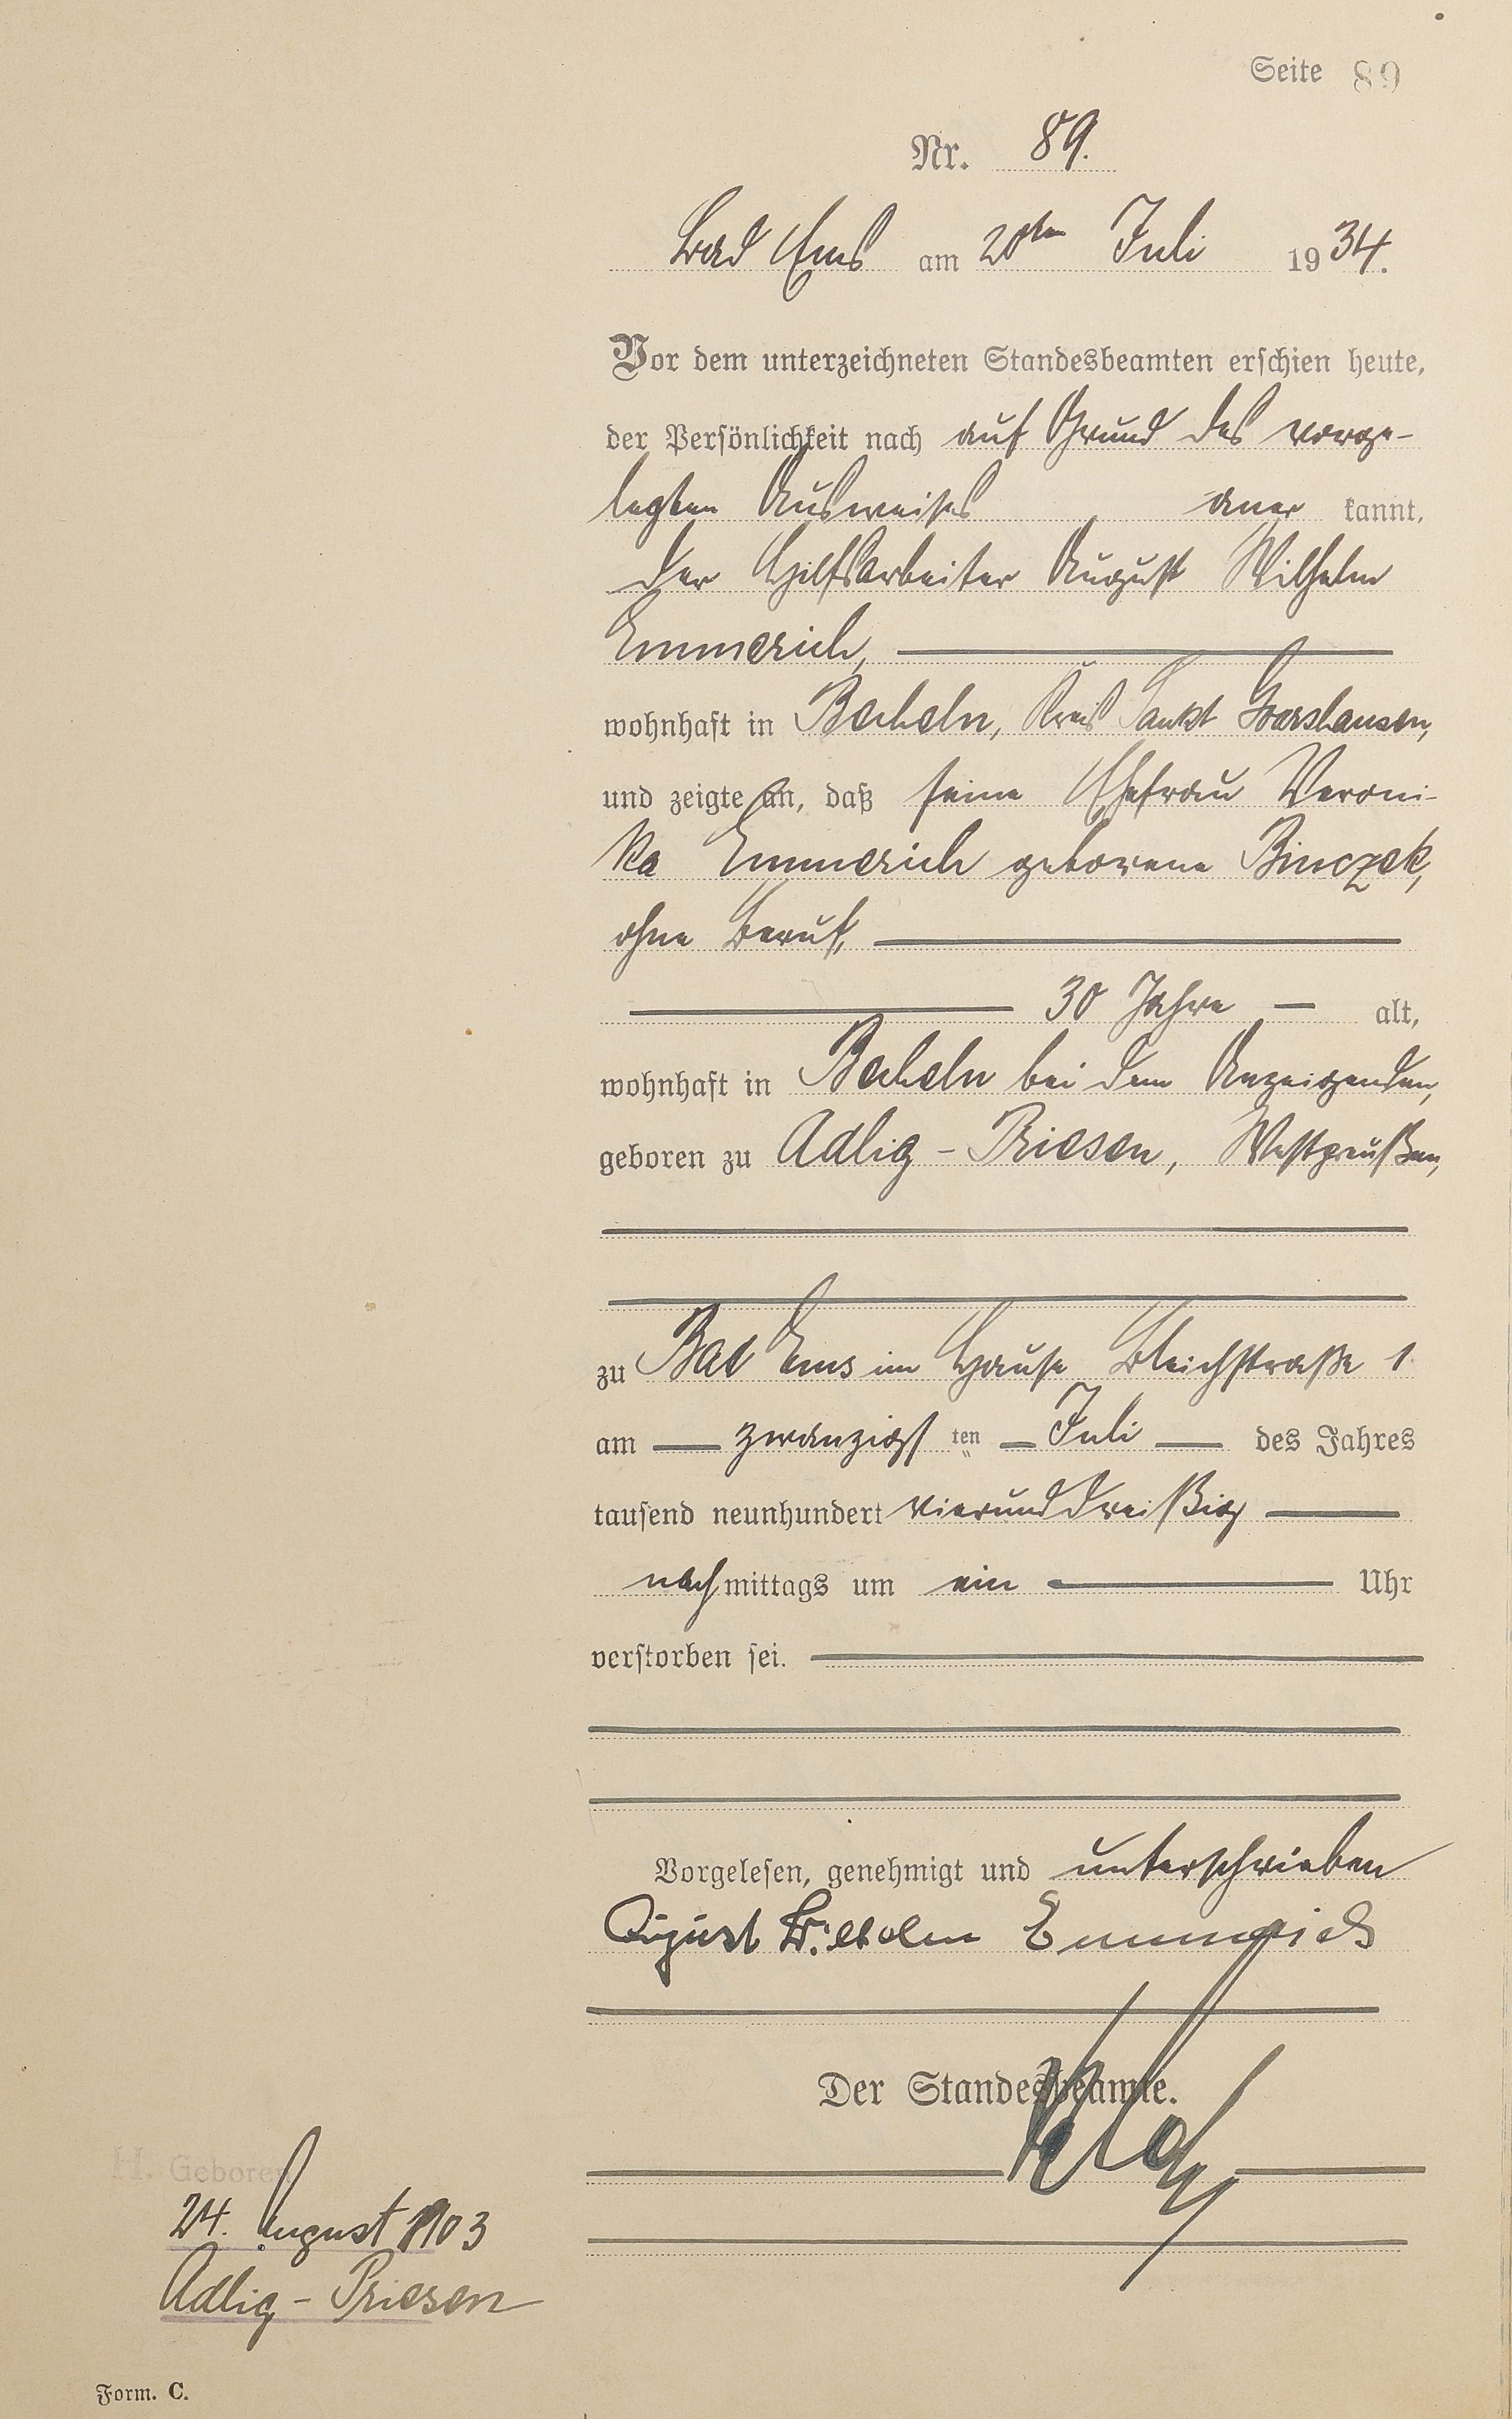 Seite 89
Nr. 89.
Bad Ems am 20ten Juli 1934.
Vor dem unterzeichneten Standesbeamten erschien heute,
der Persönlichkeit nach auf Grund des vorge-
legten Ausweises aner kannt,
der Hilfsarbeiter August Wilhelm
Emmerich,
wohnhaft in Becheln, Kreis Sankt Goarshausen,
und zeigte an, daß seine Ehefrau Veroni-
ka Emmerich geborene Binczek,
ohne Beruf,
30 Jahre alt,
wohnhaft in Becheln bei dem Anzeigenden,
geboren zu Adlig-Priesen, Westpreußen,
zu Bad Ems im Hause Bleichstraße 1
am zwanzigsten Juli des Jahres
tausend neunhundert vierunddreißig
nachmittags um ein Uhr
verstorben sei.
Vorgelesen, genehmigt und unterschrieben
August Wilhelm Emmerich
Der Standesbeamte.
H. Geboren
24. August 1903
Adlig-Priesen
Form. C.